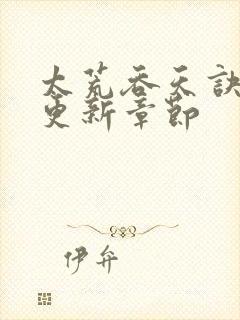 太荒吞天訣
更新章節
伊弁